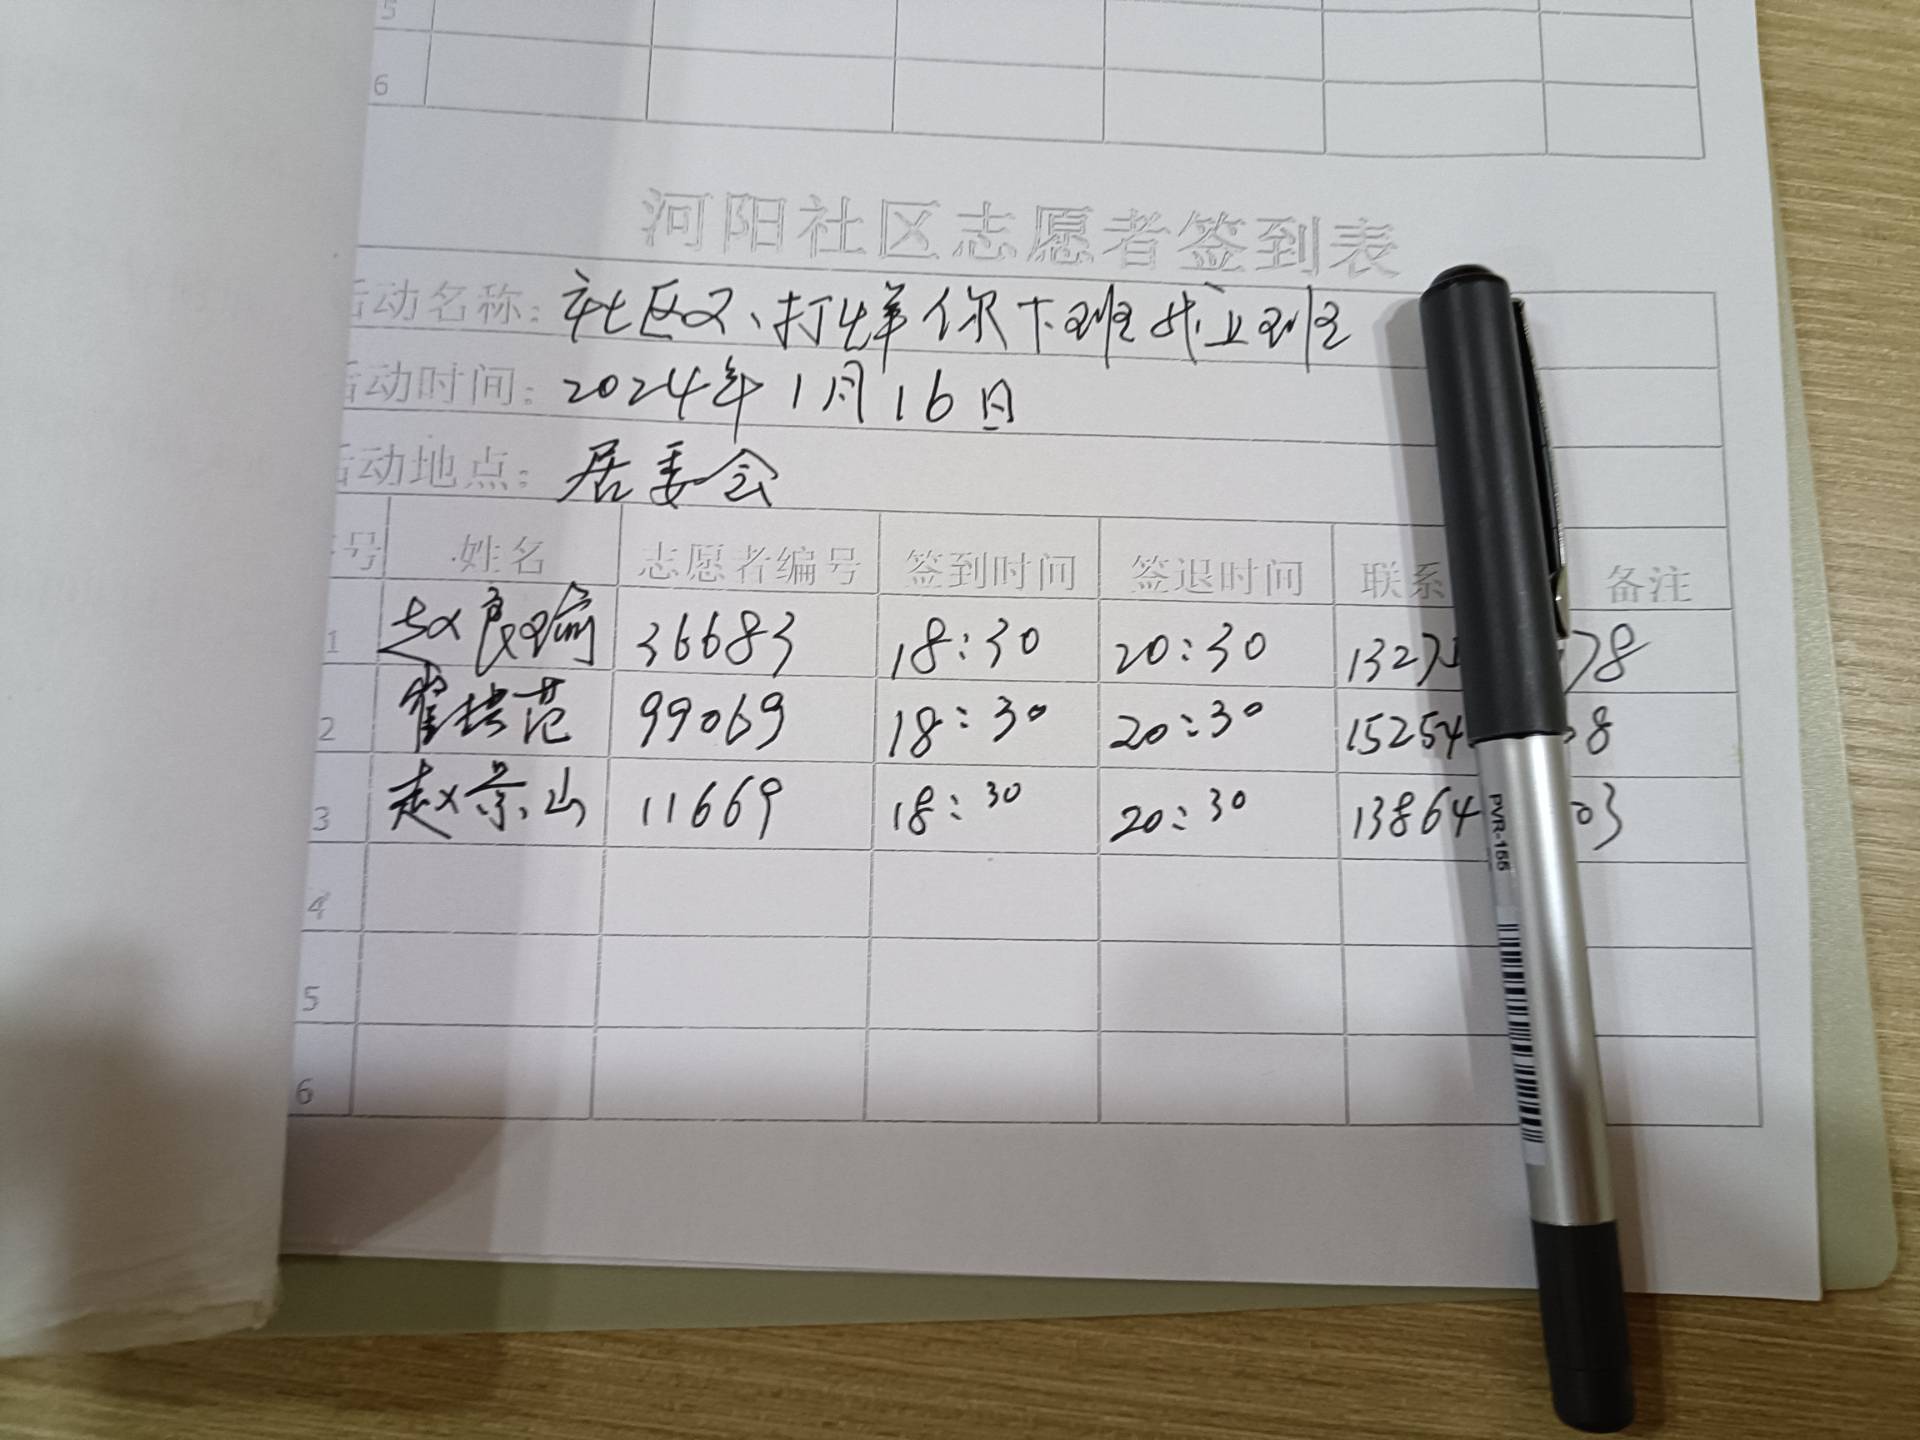 5
6
河阳社区志愿者签到表
活动名称: 社区不打烊你下班我上班
活动时间: 2024年1月16日
活动地点: 居委会
号 姓名 志愿者编号 签到时间 签退时间 联系 备注
1 赵良瑜 36683 18:30 20:30 1327 78
2 范 99069 18:30 20:30 15254 8
3 赵景山 11669 18:30 20:30 13864 03
4
5
6
PVR-155